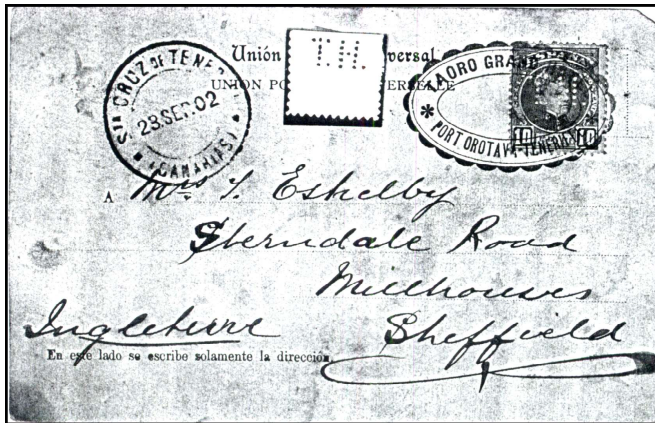 Unión versal
T.H.
UNION PO ERSELLE
STA CRUZ DE TENE
23.SEP.02
(CANARIAS)
TAORO GRAND
* PORT OROTAVA TENERIFFE *
10 10
A Mrs S. Eshelby
Sterndale Road
Millhouses
Sheffield
Ingleterre
En este lado se escribe solamente la dirección.